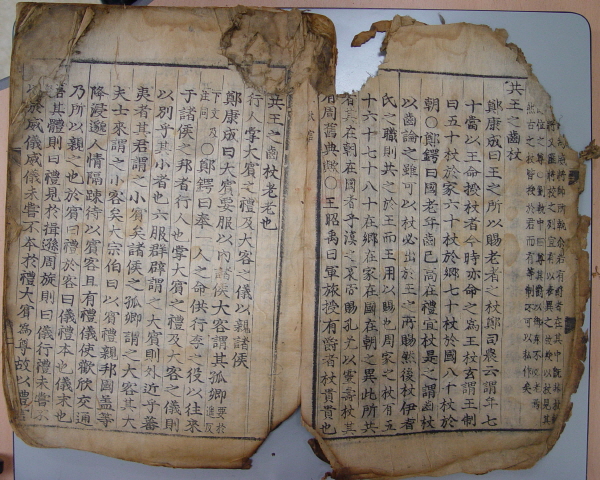 此古之杖皆授於君而有等制不可以私作矣
共王之齒杖
鄭康成曰王之所以賜老者之杖鄭司農云謂年七
十當以王命授杖者今時亦命之為王杖玄謂王制
曰五十杖於家六十杖於鄉七十杖於國八十杖於
朝○鄭鍔曰國老年齒已高在禮宜杖是之謂齒杖
以齒論之雖可以杖必出於王之所賜然後杖伊耆
氏之職則共之於王而王用以賜也周家之杖有五
十六十七十八十在鄉在家在國在朝之異此所共
者其在朝在國者乎漢之褒寵賜孔光以靈壽杖其
用周舊典歟○王昭禹曰軍旅授有爵者杖貴貴也
共王之齒杖老老也
行人掌大賓之禮及大客之儀以親諸侯
鄭康成曰大賓要服以內諸侯大客謂其孤卿要於進反
下文及注同○鄭鍔曰奉一人之命供行李之役以往來
于諸侯之邦者行人也掌大賓之禮及大客之儀則
以別乎其小者也六服群辟謂之大賓則外近乎蕃
夷者其君謂之小賓矣諸侯之孤卿謂之大客其大
夫士來謂之小客矣大宗伯曰以賓禮親邦國蓋等
降浸邈人情隔疎待以賓客且有禮儀使歡欣交通
乃所以親之也於賓曰禮於客曰儀禮本也儀末也
語其體則曰禮見於揖遜周旋則曰儀行禮未嘗不
於威儀威儀未嘗不本於禮大賓為尊故以禮言